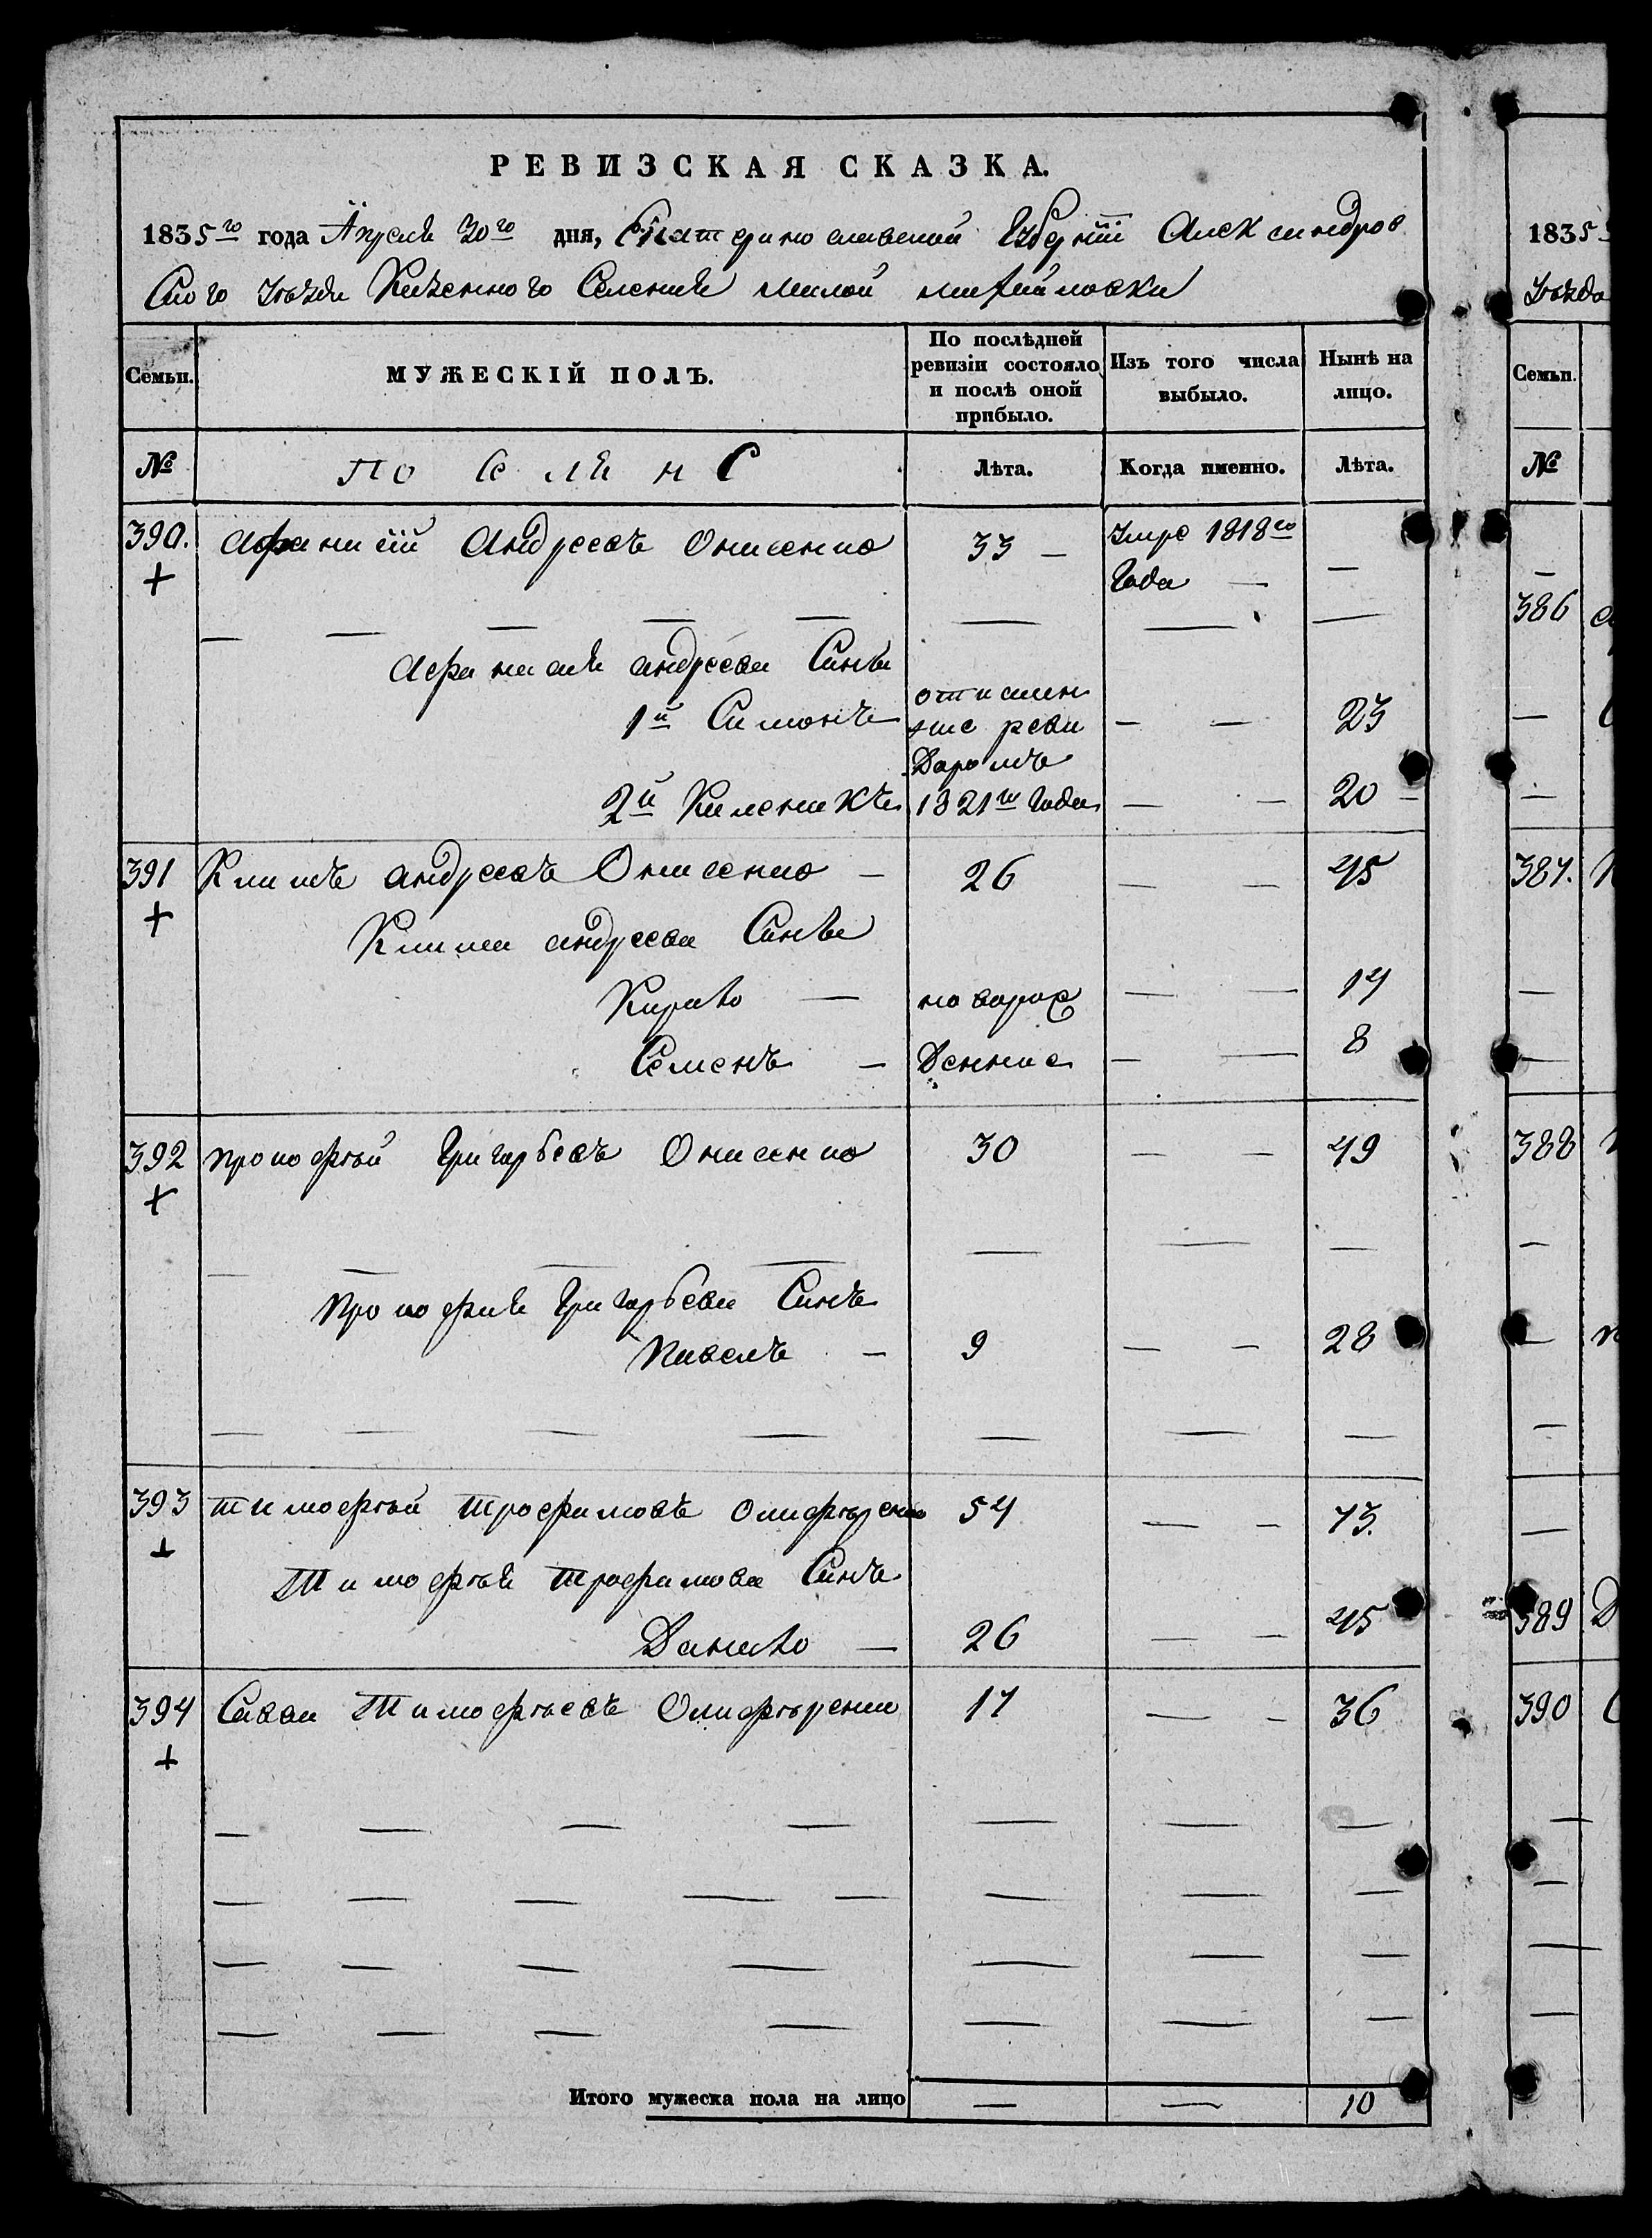 РЕВИЗСКАЯ СКАЗКА.
1835го года Апреля 30го дня, Екатеринославской Губернїи Александров
Ского Уѣзда Казенного Селения малой михайловки
Семьи. МУЖЕСКІЙ ПОЛЪ. По послѣдней ревизіи состояло и послѣ оной прибыло. Изъ того числа выбыло. Нынѣ на лицо.
№ Поселяне Лѣта. Когда именно. Лѣта.
390. Афанасїй Андреевъ Онисенко 33 — Умре 1818го Года — —
Афанасия андреева Сыны
1й Симонъ — — — 23
2й 1821го Года — — 20 —
391 Климъ андреевъ Онисенко — 26 — — 45
Клима андреева Сыны
Кирило — новорож — — 14
Семенъ — Денные — — 8
392 Прокофѣй Григорьевъ Онисенко 30 — — 49
Прокофия Григорьева Сынъ
Павелъ — 9 — — 28
393 Тимофѣй Трофимовъ Олифѣренко 54 — — 73.
Тимофѣя Трофимова Сынъ
Данило — 26 — — 45
394 Савва Тимофѣевъ Олифѣренко 17 — — 36
Итого мужеска пола на лицо — — 10
1835
Уѣзда
Семьи.
№
386
387.
388
389
390